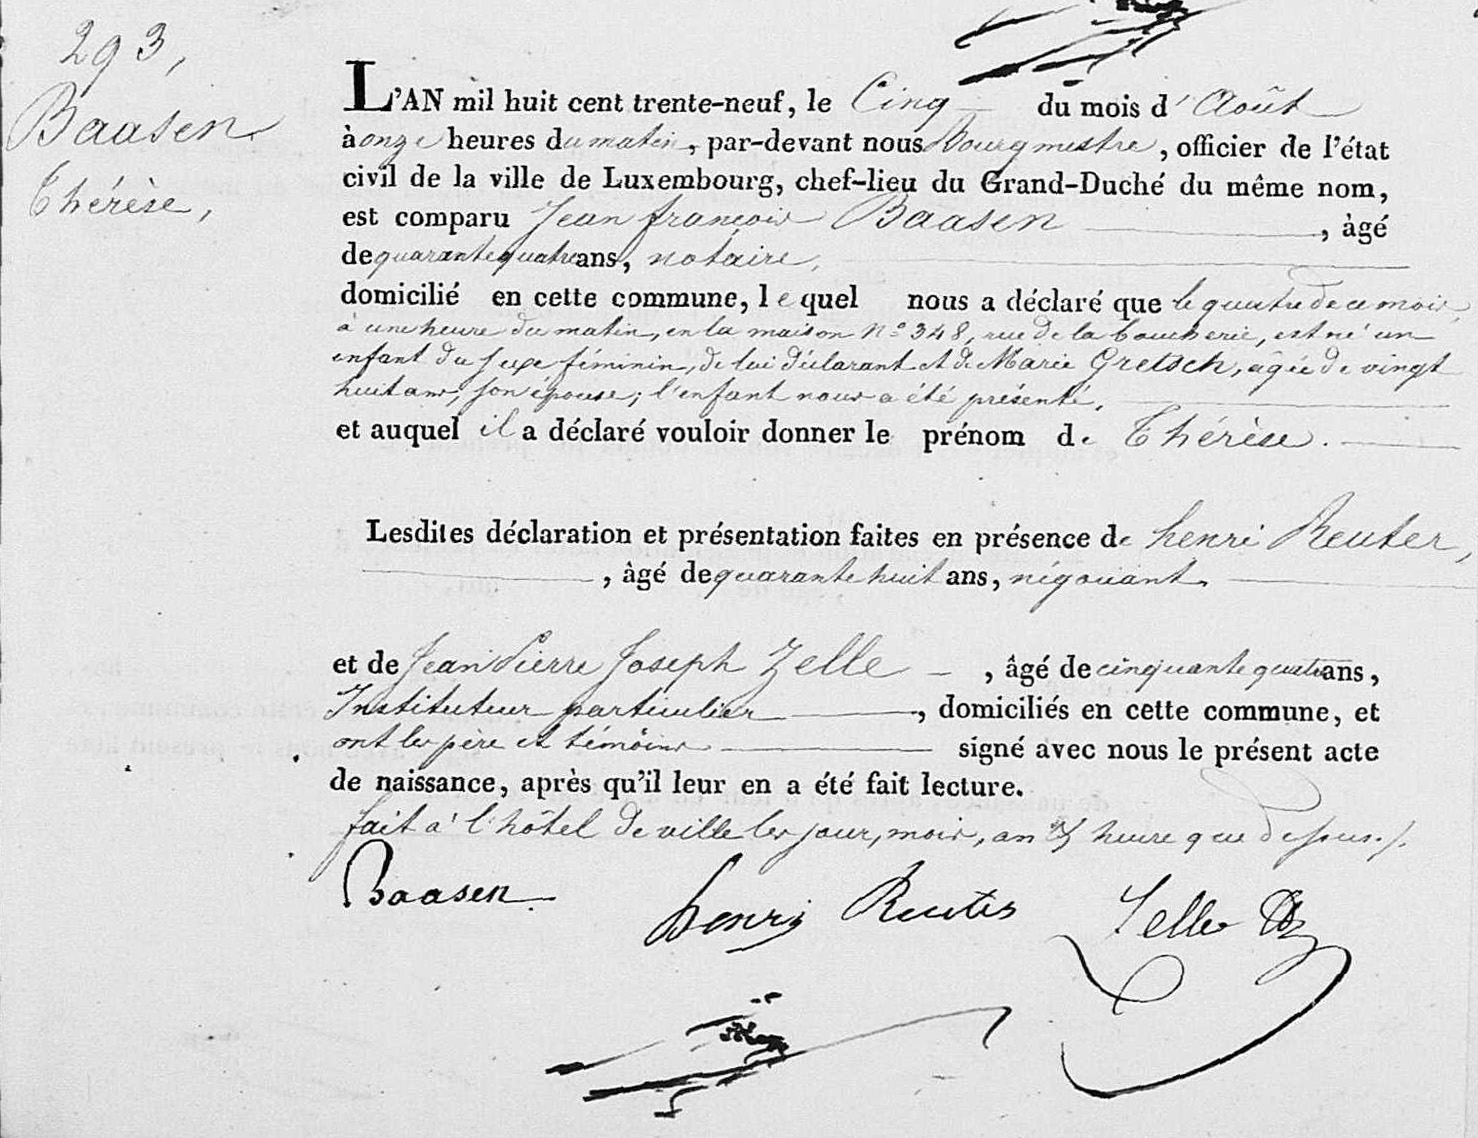 293,
Baasen
Thérèse,
L'AN mil huit cent trente-neuf, le Cinq du mois d'Août
à onze heures du matin, par-devant nous Bourgmestre, officier de l'état
civil de la ville de Luxembourg, chef-lieu du Grand-Duché du même nom,
est comparu Jean françois Baasen, âgé
de quarante quatre ans, notaire,
domicilié en cette commune, lequel nous a déclaré que le quatre de ce mois,
à une heure du matin, en la maison No 348, rue de la boucherie, est né un
enfant du sexe féminin, de lui déclarant et de Marie Gretsch, agée de vingt
huit ans, son épouse; l'enfant nous a été présenté,
et auquel il a déclaré vouloir donner le prénom de Thérèse.
Lesdites déclaration et présentation faites en présence de henri Reuter,
, âgé de quarante huit ans, négociant,
et de Jean Pierre Joseph Zelle, âgé de cinquante quatre ans,
Instituteur particulier, domiciliés en cette commune, et
ont les père et témoins signé avec nous le présent acte
de naissance, après qu'il leur en a été fait lecture.
fait à l'hôtel de ville les jour, mois, an & heure que dessus./.
Baasen
henri Reuter Zelle